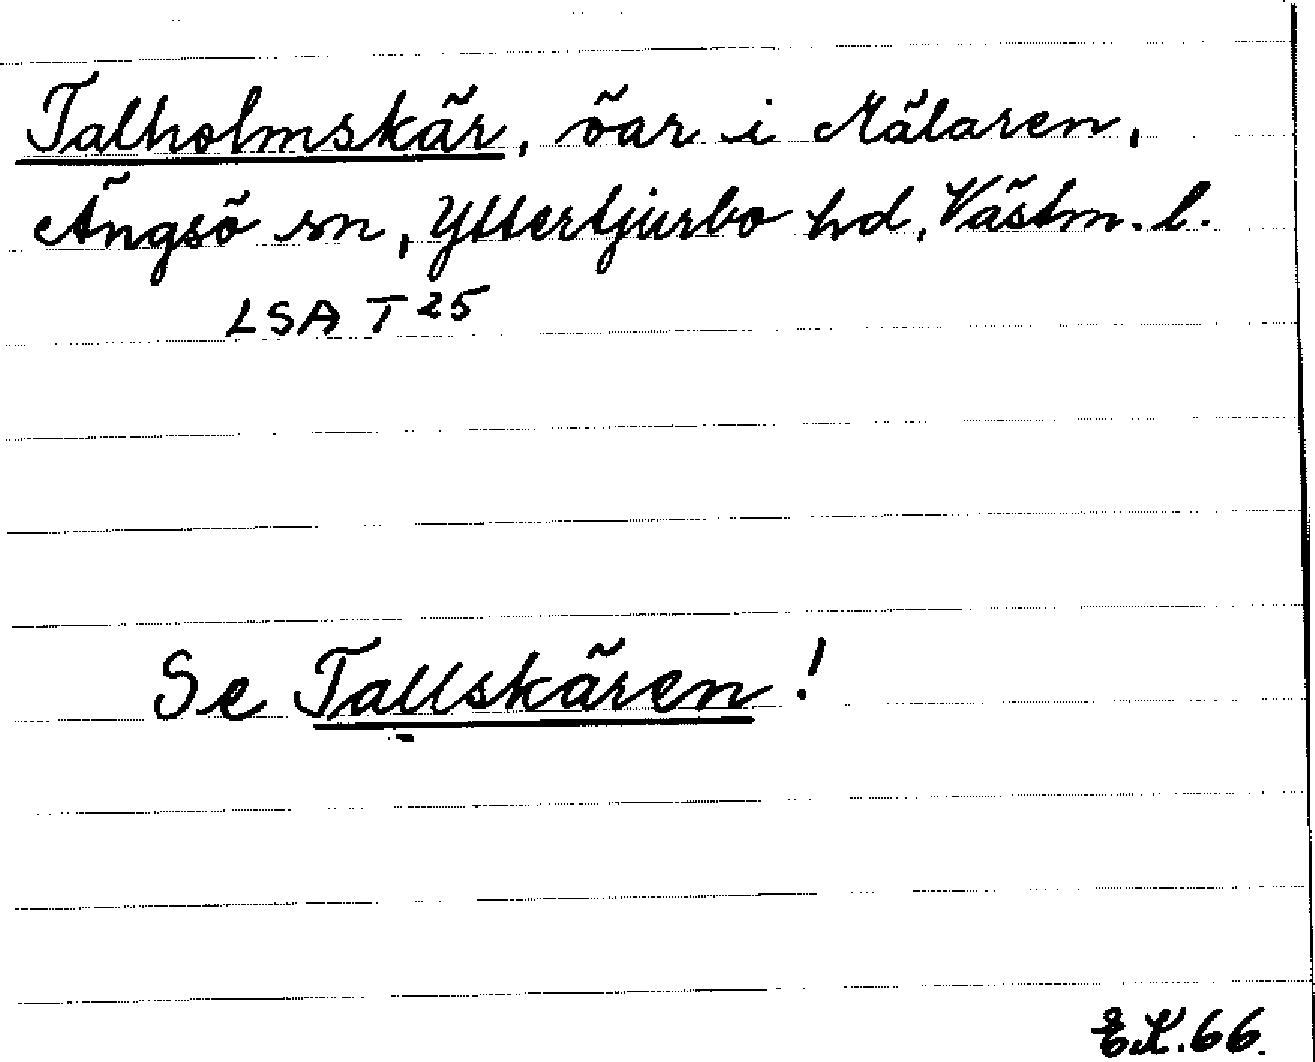 Talholmskär, öar i Mälaren,
Ängsö sn, Yttertjurbo hd, Västm. l.
LSA T 25
Se Tallskären!
E.K. 66.